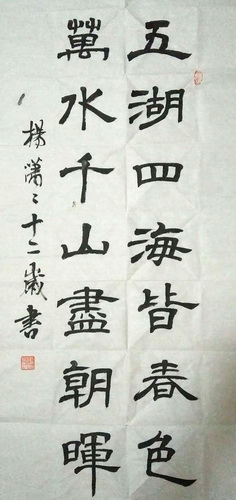 五湖四海皆春色
萬水千山盡朝暉
楊瀟瀟十二歲書